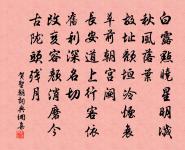 白露點曉星明滅
秋風落葉
故址頹垣冷煙衰
草前朝宮闕
長安道上行客依
舊利深名切
改變容顏消磨今
古隴頭殘月
賀聖朝詞典網集